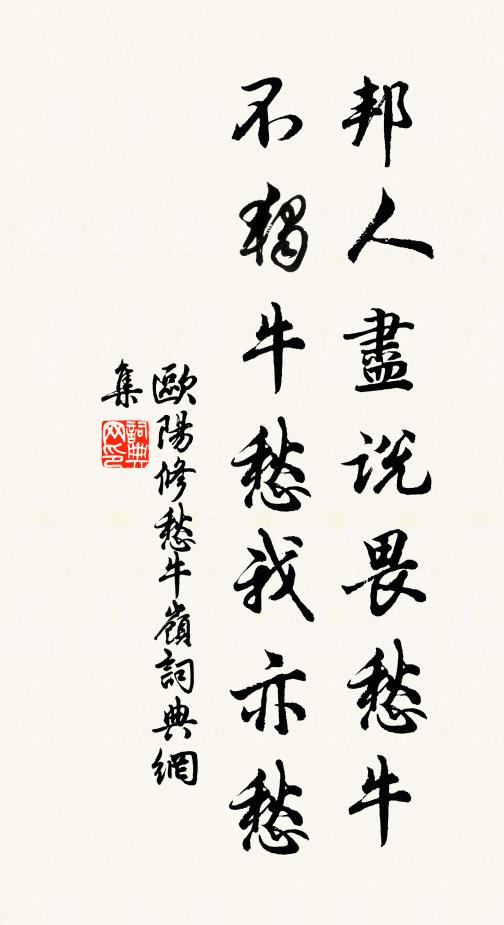 邦人盡説畏愁牛
不獨牛愁我亦愁
歐陽修愁牛嶺詞典網
集
詞典
网印